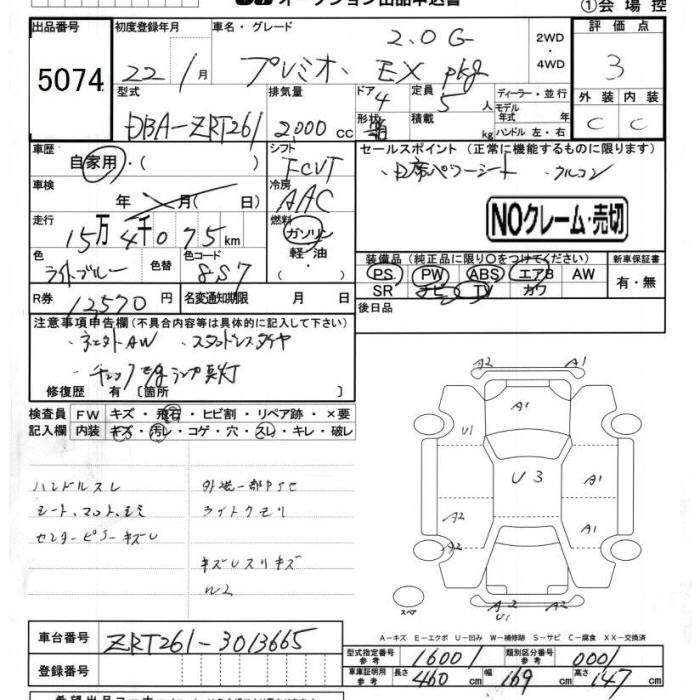 オークション出品申込書
①会場控
出品番号 初度登録年月 車名・グレード 評価点
5074
22年1月
2.0G
プレミオ、EX pkg
2WD・4WD
3
型式 排気量 ドア 定員 ディーラー・並行 外装 内装
DBA-ZRT261 2000cc 4 5人
形状 積載 kg モデル年式 年
ハンドル 左・右
C C
車歴 シフト セールスポイント(正常に機能するものに限ります)
自家用・( )
FCVT
車検 冷房
年 月( 日)
AAC
NOクレーム・売切
走行 燃料
15万4千075km
ガソリン・軽・油・
色 色替 色コード
ライトブルー 8S7
装備品(純正品に限り○をつけてください) 新車保証書
PS PW ABS エアB AW 有・無
SR ナビ TV カワ
R券 12,570円 名変通知期限 月 日
後日品
注意事項申告欄(不具合内容等は具体的に記入して下さい)
・スタッドレスタイヤ
修復歴 有〔箇所 〕
検査員 FW キズ・飛石・ヒビ割・リペア跡・×要
記入欄 内装 キズ・汚レ・コゲ・穴・スレ・キレ・破レ
ハンドルスレ
シート、マット、シミ
センターピラーキズU
ライトクモリ
キズUスリキズ
W2
A2 A1
A1
U1
U3
A1
A2
A1
A2
スペア
A2 A2
U1
A-キズ E-エクボ U-凹み W-補修跡 S-サビ C-腐食 XX-交換済
車台番号 ZRT261-3013665
登録番号
型式指定番号 参考 16001 類別区分番号 参考 0001
車庫証明用 参考 長さ 460cm 幅 169cm 高さ 147cm